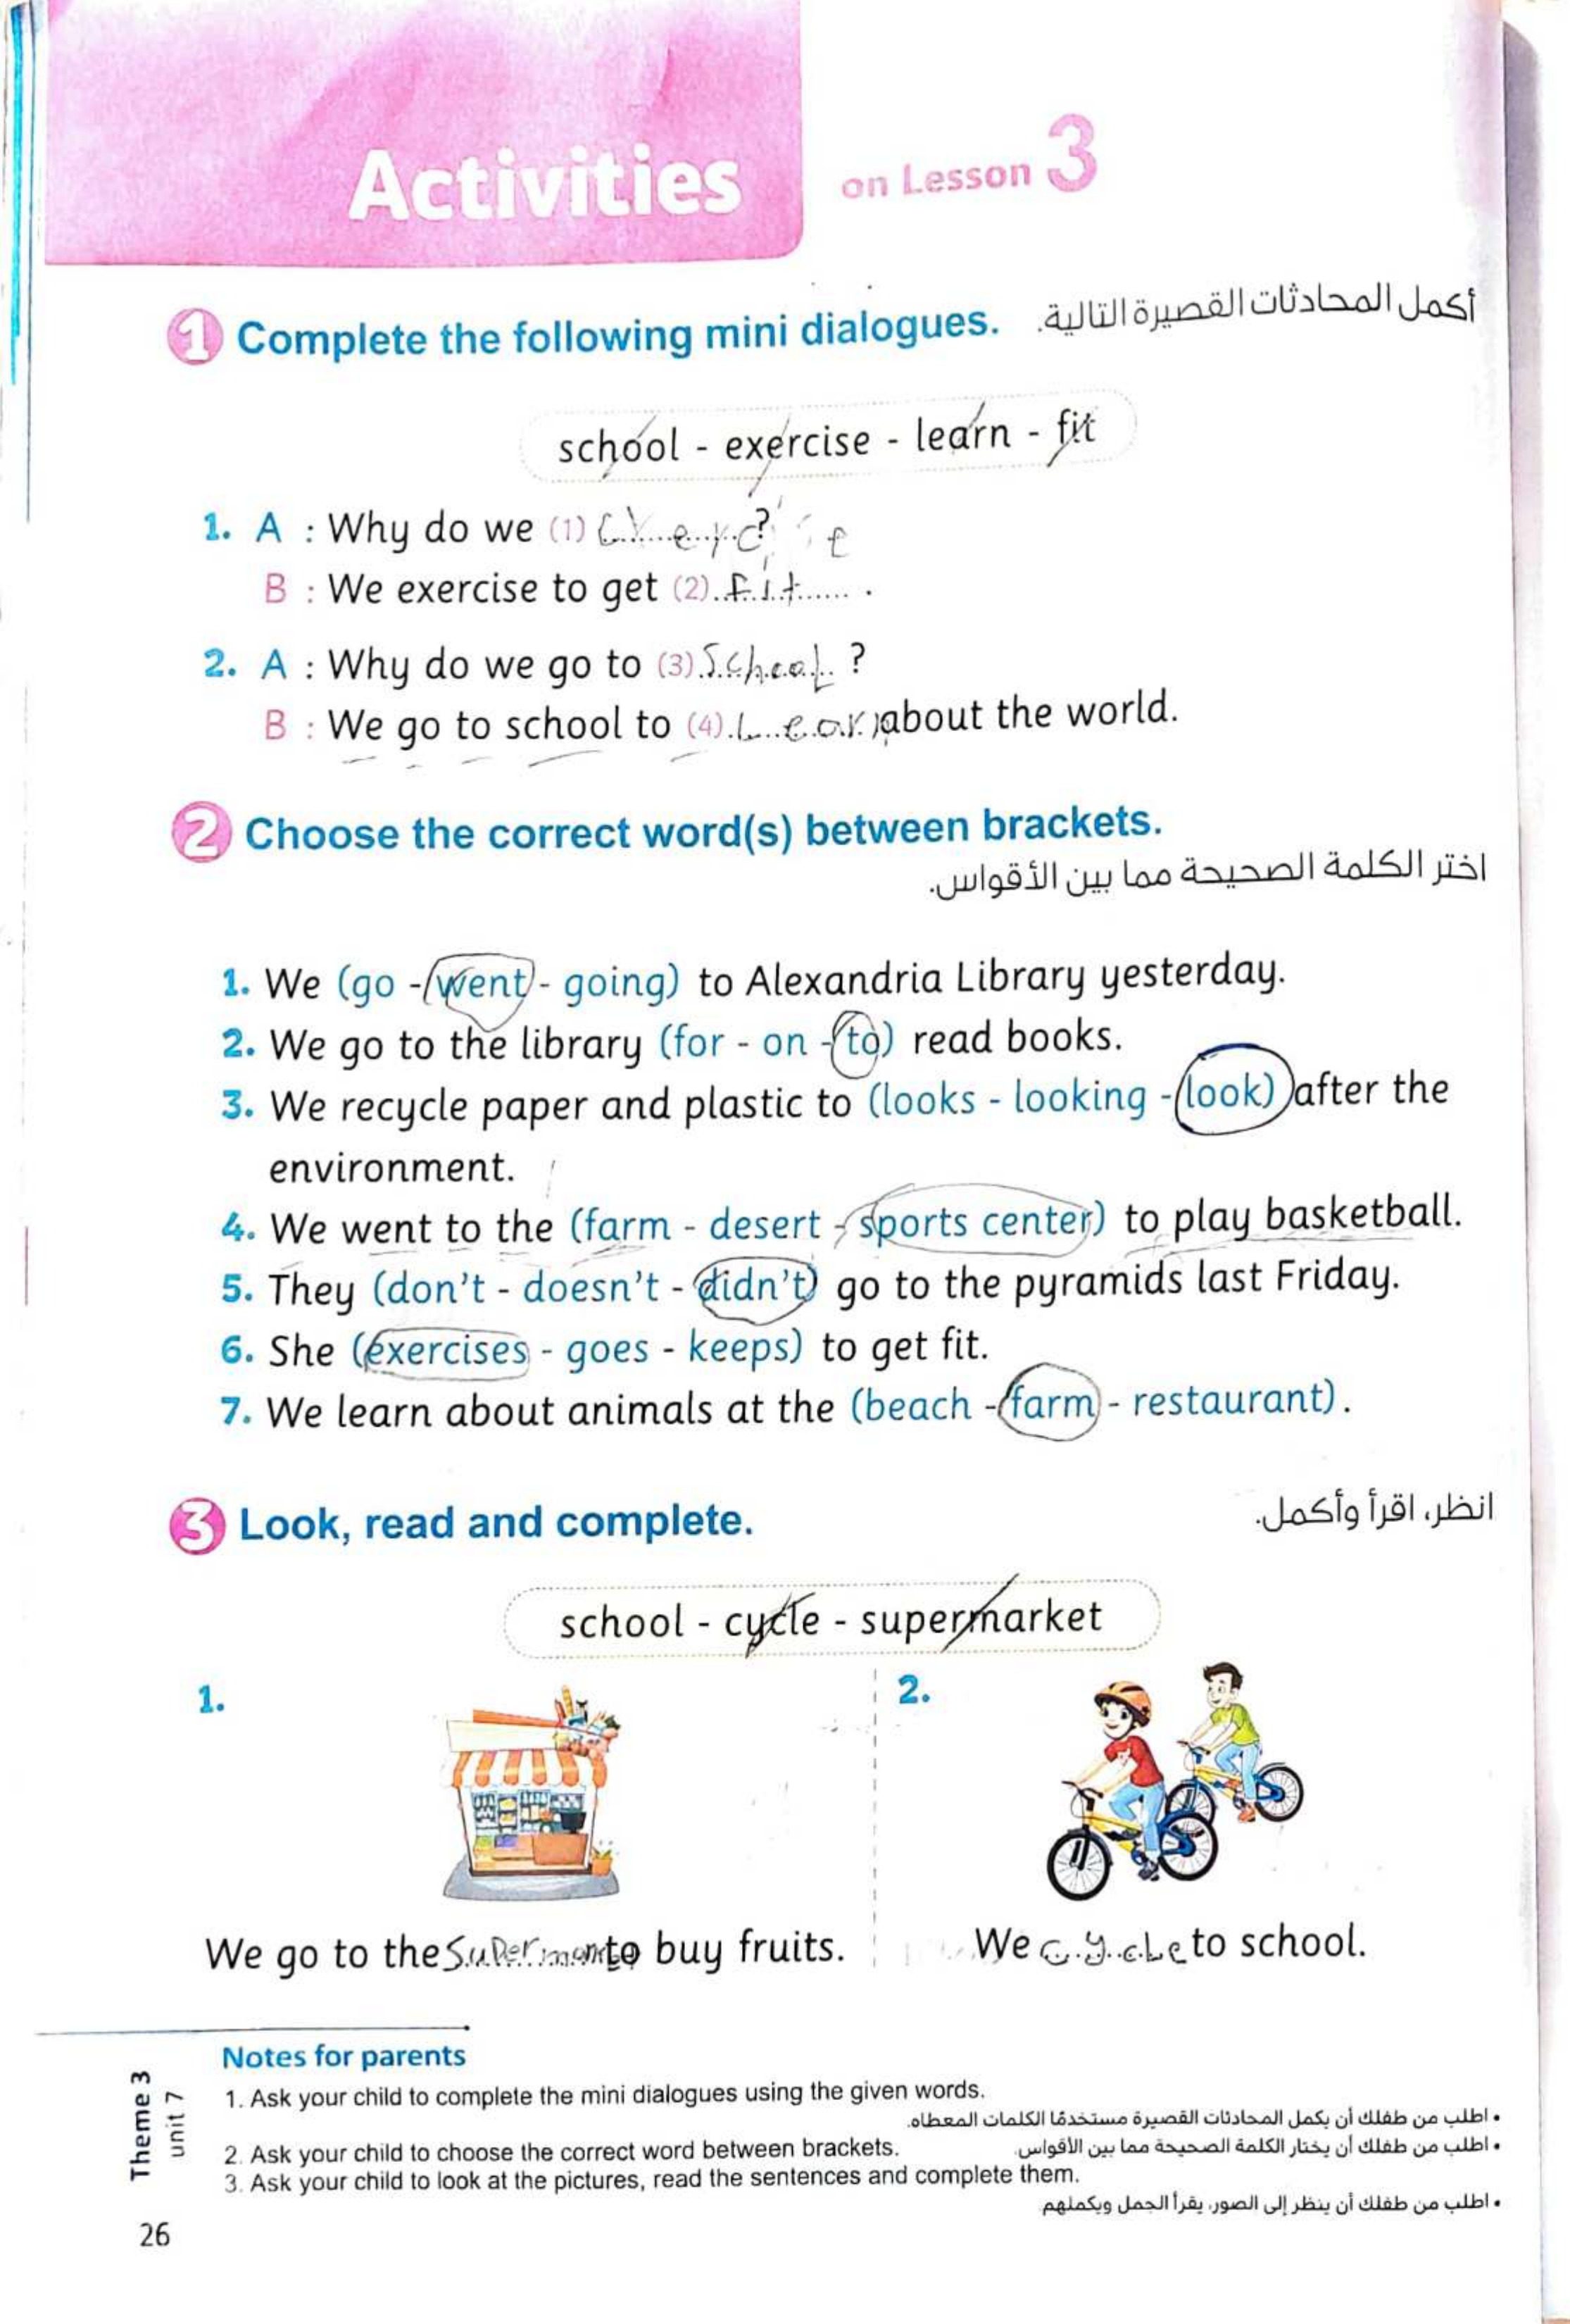 Activities on Lesson 3
1 Complete the following mini dialogues. أكمل المحادثات القصيرة التالية.
school - exercise - learn - fit
1. A : Why do we (1) ?
B : We exercise to get (2) fit .
2. A : Why do we go to (3) School ?
B : We go to school to (4) Learn about the world.
2 Choose the correct word(s) between brackets.
اختر الكلمة الصحيحة مما بين الأقواس.
1. We (go - went - going) to Alexandria Library yesterday.
2. We go to the library (for - on - to) read books.
3. We recycle paper and plastic to (looks - looking - look) after the
environment.
4. We went to the (farm - desert - sports center) to play basketball.
5. They (don't - doesn't - didn't) go to the pyramids last Friday.
6. She (exercises - goes - keeps) to get fit.
7. We learn about animals at the (beach - farm - restaurant).
3 Look, read and complete. انظر، اقرأ وأكمل.
school - cycle - supermarket
1.
2.
We go to the to buy fruits.
We cycle to school.
Notes for parents
1. Ask your child to complete the mini dialogues using the given words.
• اطلب من طفلك أن يكمل المحادثات القصيرة مستخدمًا الكلمات المعطاه.
2. Ask your child to choose the correct word between brackets.
• اطلب من طفلك أن يختار الكلمة الصحيحة مما بين الأقواس.
3. Ask your child to look at the pictures, read the sentences and complete them.
• اطلب من طفلك أن ينظر إلى الصور، يقرأ الجمل ويكملهم
Theme 3
unit 7
26